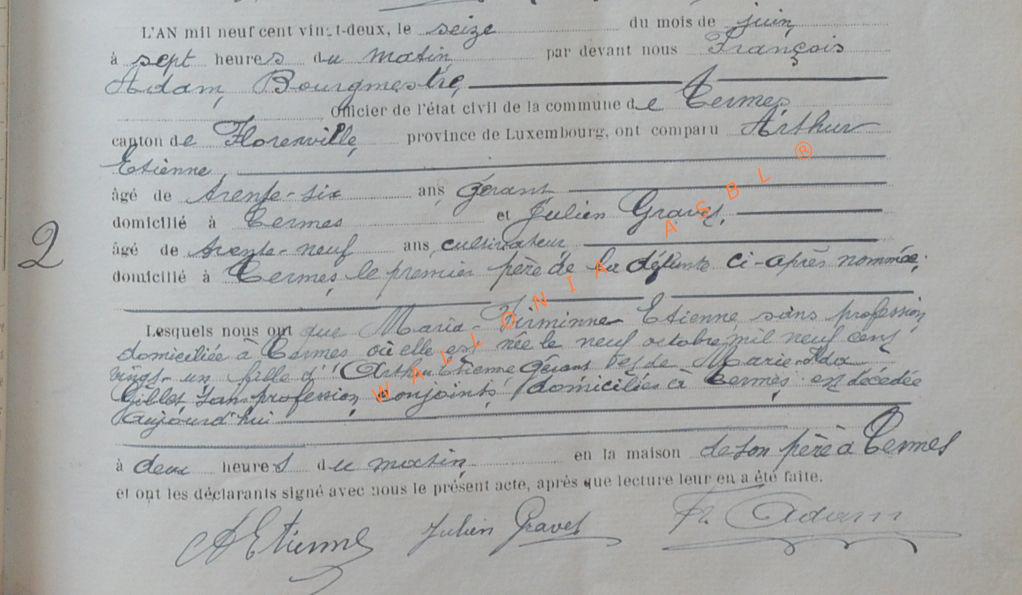 L'AN mil neuf cent vingt-deux, le seize du mois de juin
à sept heures du matin, par devant nous François
Adam, Bourgmestre,
Officier de l'état civil de la commune de Termes
canton de Florenville, province de Luxembourg, ont comparu Arthur
Etienne,
âgé de trente-six ans, gérant
domicilié à Termes et Julien Gravet,
âgé de trente-neuf ans, cultivateur,
2
domicilié à Termes, le premier père de la défunte ci-après nommée;
Lesquels nous ont que Maria-Firminne Etienne, sans profession
domiciliée à Termes où elle est née le neuf octobre mil neuf cent
vingt-un fille d'Arthur Etienne Gérant et de Marie
sans profession, conjoints, domiciliés à Termes, est décédée
aujourd'hui
à deux heures du matin, en la maison de son père à Termes
et ont les déclarants signé avec nous le présent acte, après que lecture leur en a été faite.
AEtienne Julien Gravet Fr. Adam
WALLONIA ASBL ®